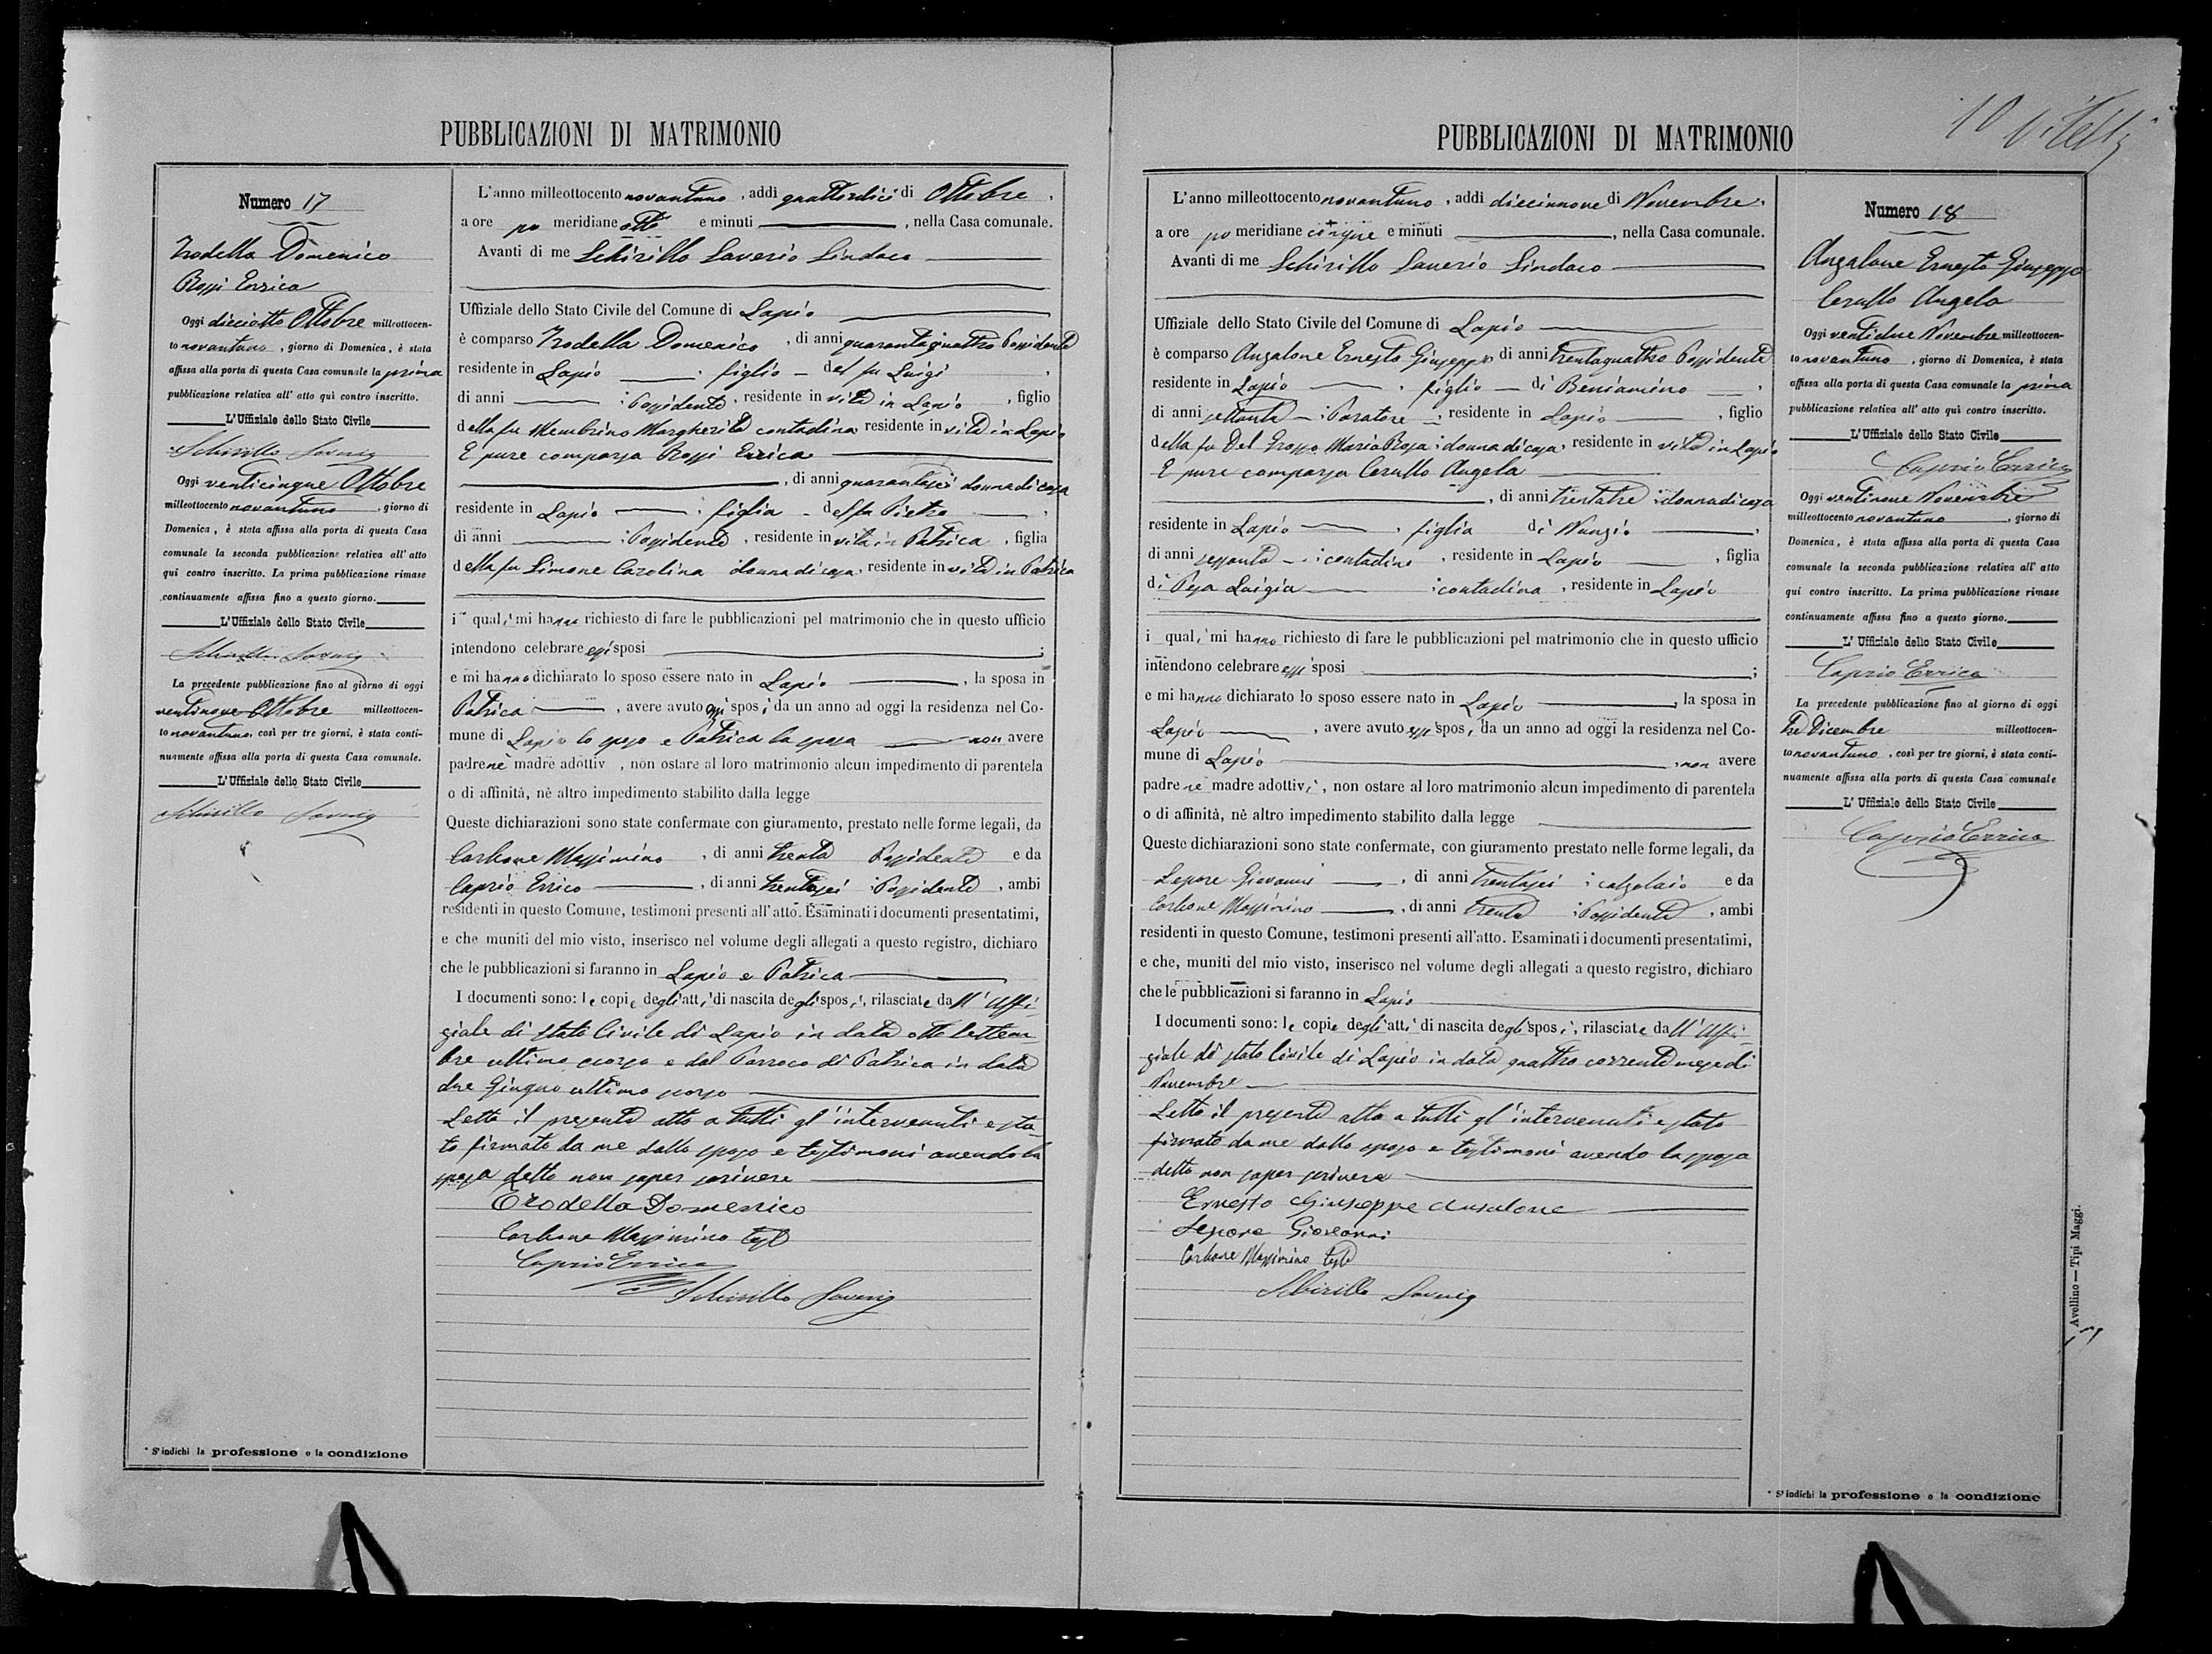 PUBBLICAZIONI DI MATRIMONIO
Numero 17
Trodella Domenico
Rossi Errica
Oggi dieciotto Ottobre milleottocen-
to novantuno, giorno di Domenica, è stata
affissa alla porta di questa Casa comunale la prima
pubblicazione relativa all'atto quì contro inscritto.
L'Uffiziale dello Stato Civile
Schirillo Saverio
Oggi venticinque Ottobre
milleottocento novantuno, giorno di
Domenica, è stata affissa alla porta di questa Casa
comunale la seconda pubblicazione relativa all'atto
qui contro inscritto. La prima pubblicazione rimase
continuamente affissa fino a questo giorno.
L'Uffiziale dello Stato Civile
Schirillo Saverio
La precedente pubblicazione fino al giorno di oggi
ventinove Ottobre milleottocen-
to novantuno, così per tre giorni, è stata conti-
nuamente affissa alla porta di questa Casa comunale.
L'Uffiziale dello Stato Civile
Schirillo Saverio
* S'indichi la professione o la condizione
L'anno milleottocento novantuno, addì quattordici di Ottobre,
a ore po meridiane otto e minuti , nella Casa comunale.
Avanti di me Schirillo Saverio Sindaco
Uffiziale dello Stato Civile del Comune di Lapio
è comparso Trodella Domenico, di anni quarantaquattro Possidente
residente in Lapio, figlio del fu Luigi,
di anni : Possidente, residente in vita in Lapio, figlio
della fu Membrino Margherita contadina residente in vita in Lapio
E pure comparsa Rossi Errica
, di anni quarantasei donna di casa
residente in Lapio, figlia del fu Pietro,
di anni : Possidente, residente in vita in Patrica, figlia
della fu Simone Carolina donna di casa, residente in vita in Patrica
i quali mi hanno richiesto di fare le pubblicazioni pel matrimonio che in questo ufficio
intendono celebrare essi sposi ;
e mi hanno dichiarato lo sposo essere nato in Lapio, la sposa in
Patrica, avere avuto essi sposi da un anno ad oggi la residenza nel Co-
mune di Lapio lo sposo e Patrica la sposa non avere
padre nè madre adottiv , non ostare al loro matrimonio alcun impedimento di parentela
o di affinità, nè altro impedimento stabilito dalla legge
Queste dichiarazioni sono state confermate con giuramento, prestato nelle forme legali, da
Carbone Massimino, di anni trenta Possidente e da
Caprio Errico, di anni trentasei : Possidente, ambi
residenti in questo Comune, testimoni presenti all'atto. Esaminati i documenti presentatimi,
e che muniti del mio visto, inserisco nel volume degli allegati a questo registro, dichiaro
che le pubblicazioni si faranno in Lapio e Patrica
I documenti sono: le copie degli atti di nascita degli sposi, rilasciate dall'Uffi-
ziale di stato Civile di Lapio in data otto Settem
bre ultimo scorso e dal Parroco di Patrica in data
due Giugno ultimo scorso
Letto il presente atto a tutti gl'intervenuti e sta-
to firmato da me dallo sposo e testimoni avendo la
sposa detto non saper scrivere
Trodella Domenico
Carbone Massimino test
Caprio Errico
Schirillo Saverio
PUBBLICAZIONI DI MATRIMONIO
10
L'anno milleottocento novantuno, addì diecinnove di Novembre,
a ore po meridiane cinque e minuti , nella Casa comunale.
Avanti di me Schirillo Saverio Sindaco
Uffiziale dello Stato Civile del Comune di Lapio
è comparso Anzalone Ernesto Giuseppe di anni trentaquattro Possidente
residente in Lapio, figlio di Beniamino,
di anni settanta : , residente in Lapio, figlio
della fu Del Grosso Maria Rosa : donna di casa, residente in vita in Lapio
E pure comparsa Cerullo Angela
, di anni trentatre : donna di casa
residente in Lapio, figlia di Nunzio,
di anni sessanta : contadino, residente in Lapio, figlia
di Pesa Luigia : contadina, residente in Lapio
i quali mi hanno richiesto di fare le pubblicazioni pel matrimonio che in questo ufficio
intendono celebrare essi sposi ;
e mi hanno dichiarato lo sposo essere nato in Lapio, la sposa in
Lapio, avere avuto essi sposi, da un anno ad oggi la residenza nel Co-
mune di Lapio, non avere
padre nè madre adottivi, non ostare al loro matrimonio alcun impedimento di parentela
o di affinità, nè altro impedimento stabilito dalla legge
Queste dichiarazioni sono state confermate, con giuramento prestato nelle forme legali, da
Lepore Giovanni, di anni trentasei : calzolaio e da
Carbone Massimino, di anni trenta : Possidente, ambi
residenti in questo Comune, testimoni presenti all'atto. Esaminati i documenti presentatimi,
e che, muniti del mio visto, inserisco nel volume degli allegati a questo registro, dichiaro
che le pubblicazioni si faranno in Lapio
I documenti sono: le copie degli atti di nascita degli sposi, rilasciate dall'Uffi-
ziale di stato Civile di Lapio in data quattro corrente mese di
Novembre
Letto il presente atto a tutti gl'intervenuti e stato
firmato da me dallo sposo e testimoni avendo la sposa
detto non saper scrivere
Ernesto Giuseppe Anzalone
Lepore Giovanni
Carbone Massimino test
Schirillo Saverio
Numero 18
Anzalone Ernesto Giuseppe
Cerullo Angela
Oggi ventidue Novembre milleottocen-
to novantuno, giorno di Domenica, è stata
affissa alla porta di questa Casa comunale la prima
pubblicazione relativa all'atto quì contro inscritto.
L'Uffiziale dello Stato Civile
Caprio Errico
Oggi ventinove Novembre
milleottocento novantuno, giorno di
Domenica, è stata affissa alla porta di questa Casa
comunale la seconda pubblicazione relativa all'atto
qui contro inscritto. La prima pubblicazione rimase
continuamente affissa fino a questo giorno.
L'Uffiziale dello Stato Civile
Caprio Errico
La precedente pubblicazione fino al giorno di oggi
tre Dicembre milleottocen-
to novantuno, così per tre giorni, è stata conti-
nuamente affissa alla porta di questa Casa comunale
L'Uffiziale dello Stato Civile
Caprio Errico
* S'indichi la professione o la condizione
Avellino — Tipi Maggi.